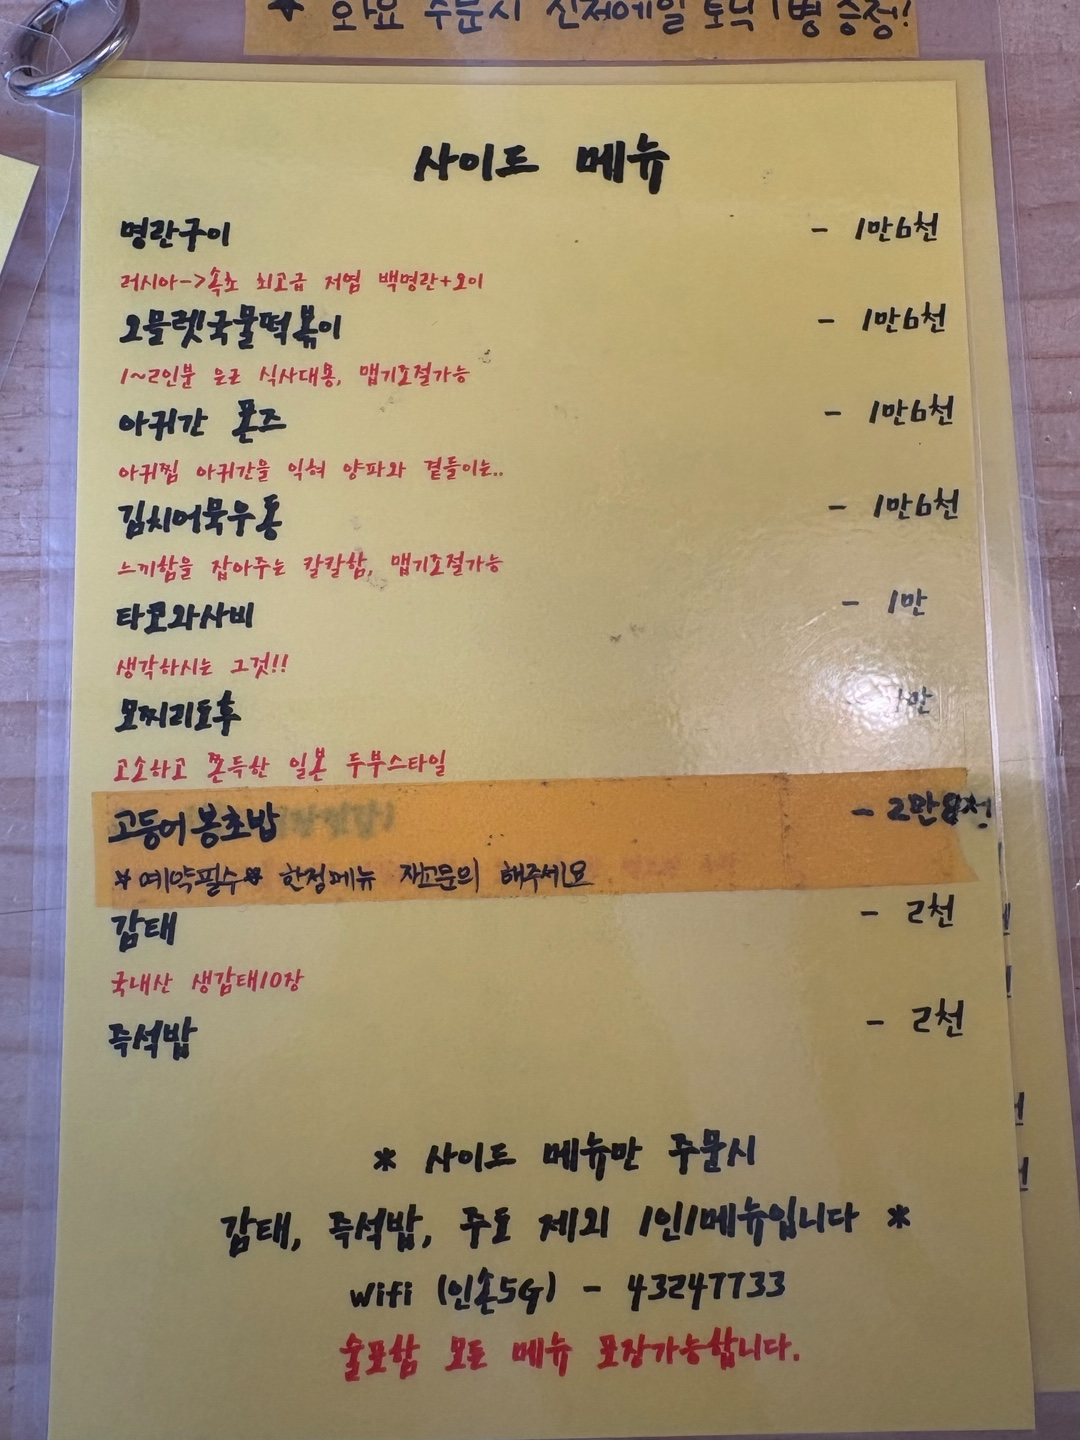 * 와요 주문시 진저에일 토닉 1병 증정!
사이드 메뉴
명란구이 - 1만6천
러시아->속초 최고급 저염 백명란+오이
오믈렛국물떡볶이 - 1만6천
1~2인분 은근 식사대용, 맵기조절가능
아귀간 폰즈 - 1만6천
아귀찜 아귀간을 익혀 양파와 곁들이는..
김치어묵우동 - 1만6천
느끼함을 잡아주는 칼칼함, 맵기조절가능
타코와사비 - 1만
생각하시는 그것!!
모찌리도후 - 1만
고소하고 쫀득한 일본 두부스타일
고등어봉초밥 - 2만8천
*예약필수* 한정메뉴 재고문의 해주세요
감태 - 2천
국내산 생감태10장
즉석밥 - 2천
* 사이드 메뉴만 주문시
감태, 즉석밥, 주도 제외 1인1메뉴입니다 *
wifi (인손5G) - 43247733
술포함 모든 메뉴 포장가능합니다.